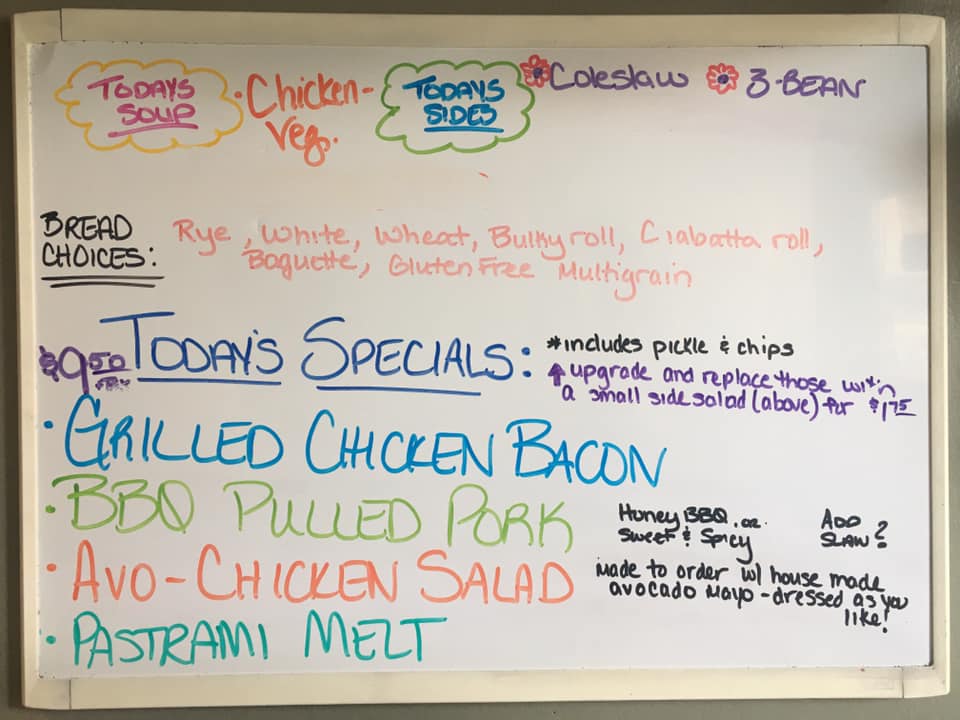 TODAYS SOUP
• Chicken-Veg.
TODAYS SIDES
Coleslaw 3-BEAN
BREAD CHOICES:
Rye, White, Wheat, Bulky roll, Ciabatta roll,
Baguette, Gluten Free Multigrain
$9.50 TODAY'S SPECIALS:
*includes pickle & chips
upgrade and replace those with
a small side salad (above) for $1.75
• GRILLED CHICKEN BACON
• BBQ PULLED PORK
Honey BBQ or
Sweet & Spicy
ADD SLAW?
• AVO-CHICKEN SALAD
made to order w/ house made
avocado mayo - dressed as you
like!
• PASTRAMI MELT